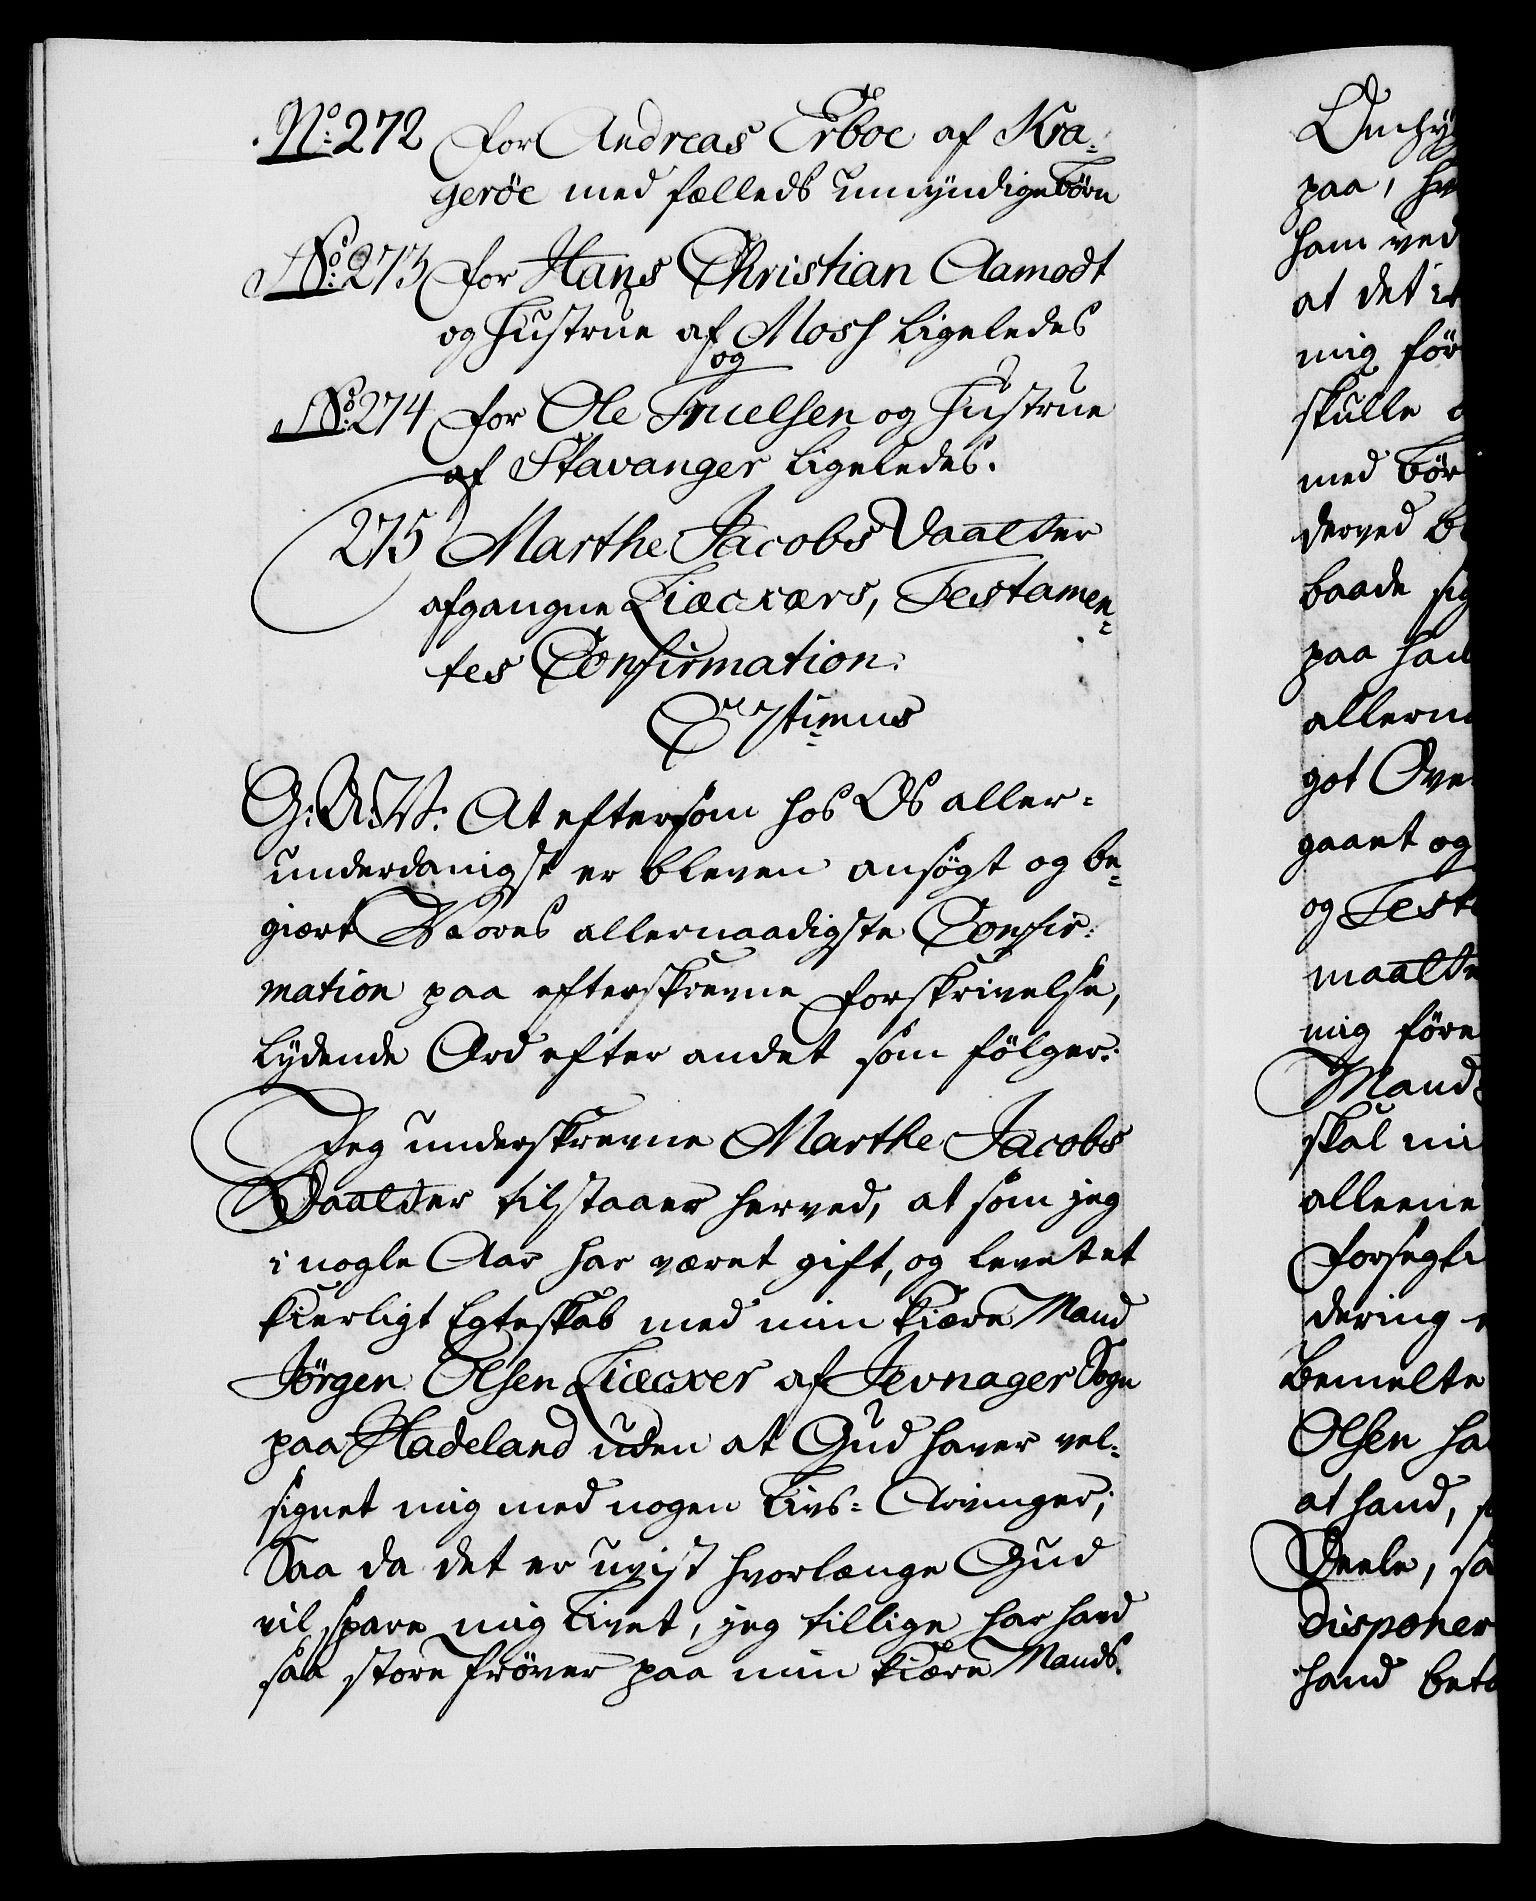 No: 272 for Andreas Erboe af Kra-
gerøe med fælleds umyndige Børn
No: 273 for Hans Christian Aamodt
og Hustrue af Moss ligeledes
og
No: 274 for Ole Truelsen og Hustrue
af Stavanger ligeledes.
275 Marthe Jacobs Daatter
afgangne Liæcxærs, Testamen-
tes Confirmation.
G: A: V: At eftersom hos Os aller-
underdanigst er bleven ansøgt og be-
giært Vores allernaadigste Confir-
mation paa efterskrevne Forskrivelse,
lydende Ord efter andet som følger:
Jeg underskrevne Marthe Jacobs
Daatter tilstaaer herved, at som jeg
i nogle Aar har været gift, og levet et
kierligt Egteskab med min kiære Mand
Jörgen Olsen Liæcxer af Jevnager Sogn
paa Hadeland uden at Gud haver vel-
signet mig med nogen Livs-Arvinger;
Saa da det er uvist hvorlænge Gud
vil spare mig Livet, jeg tillige har havd
saa store Prøver paa min kiære Mands
paa,
ham ved
at det
mig før
skulle
med Bør
derved
baade sig
paa
allern
got Ove
gaaet og
og Test
maatte
mig føre
Mand
skal mi
alleene
forsegl
dering
bemelte
Olsen ha
at hand,
Deele, sa
disponer
hand beta